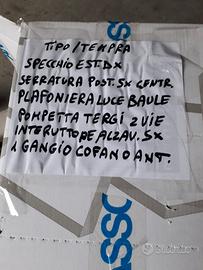 TIPO/TEMPRA
SPECCHIO EST. DX
SERRATURA POST. SX CENTR.
PLAFONIERA LUCE BAULE
POMPETTA TERGI 2 VIE
INTERUTTORE ALZAV. SX
1 GANGIO COFANO ANT.
Subito.it